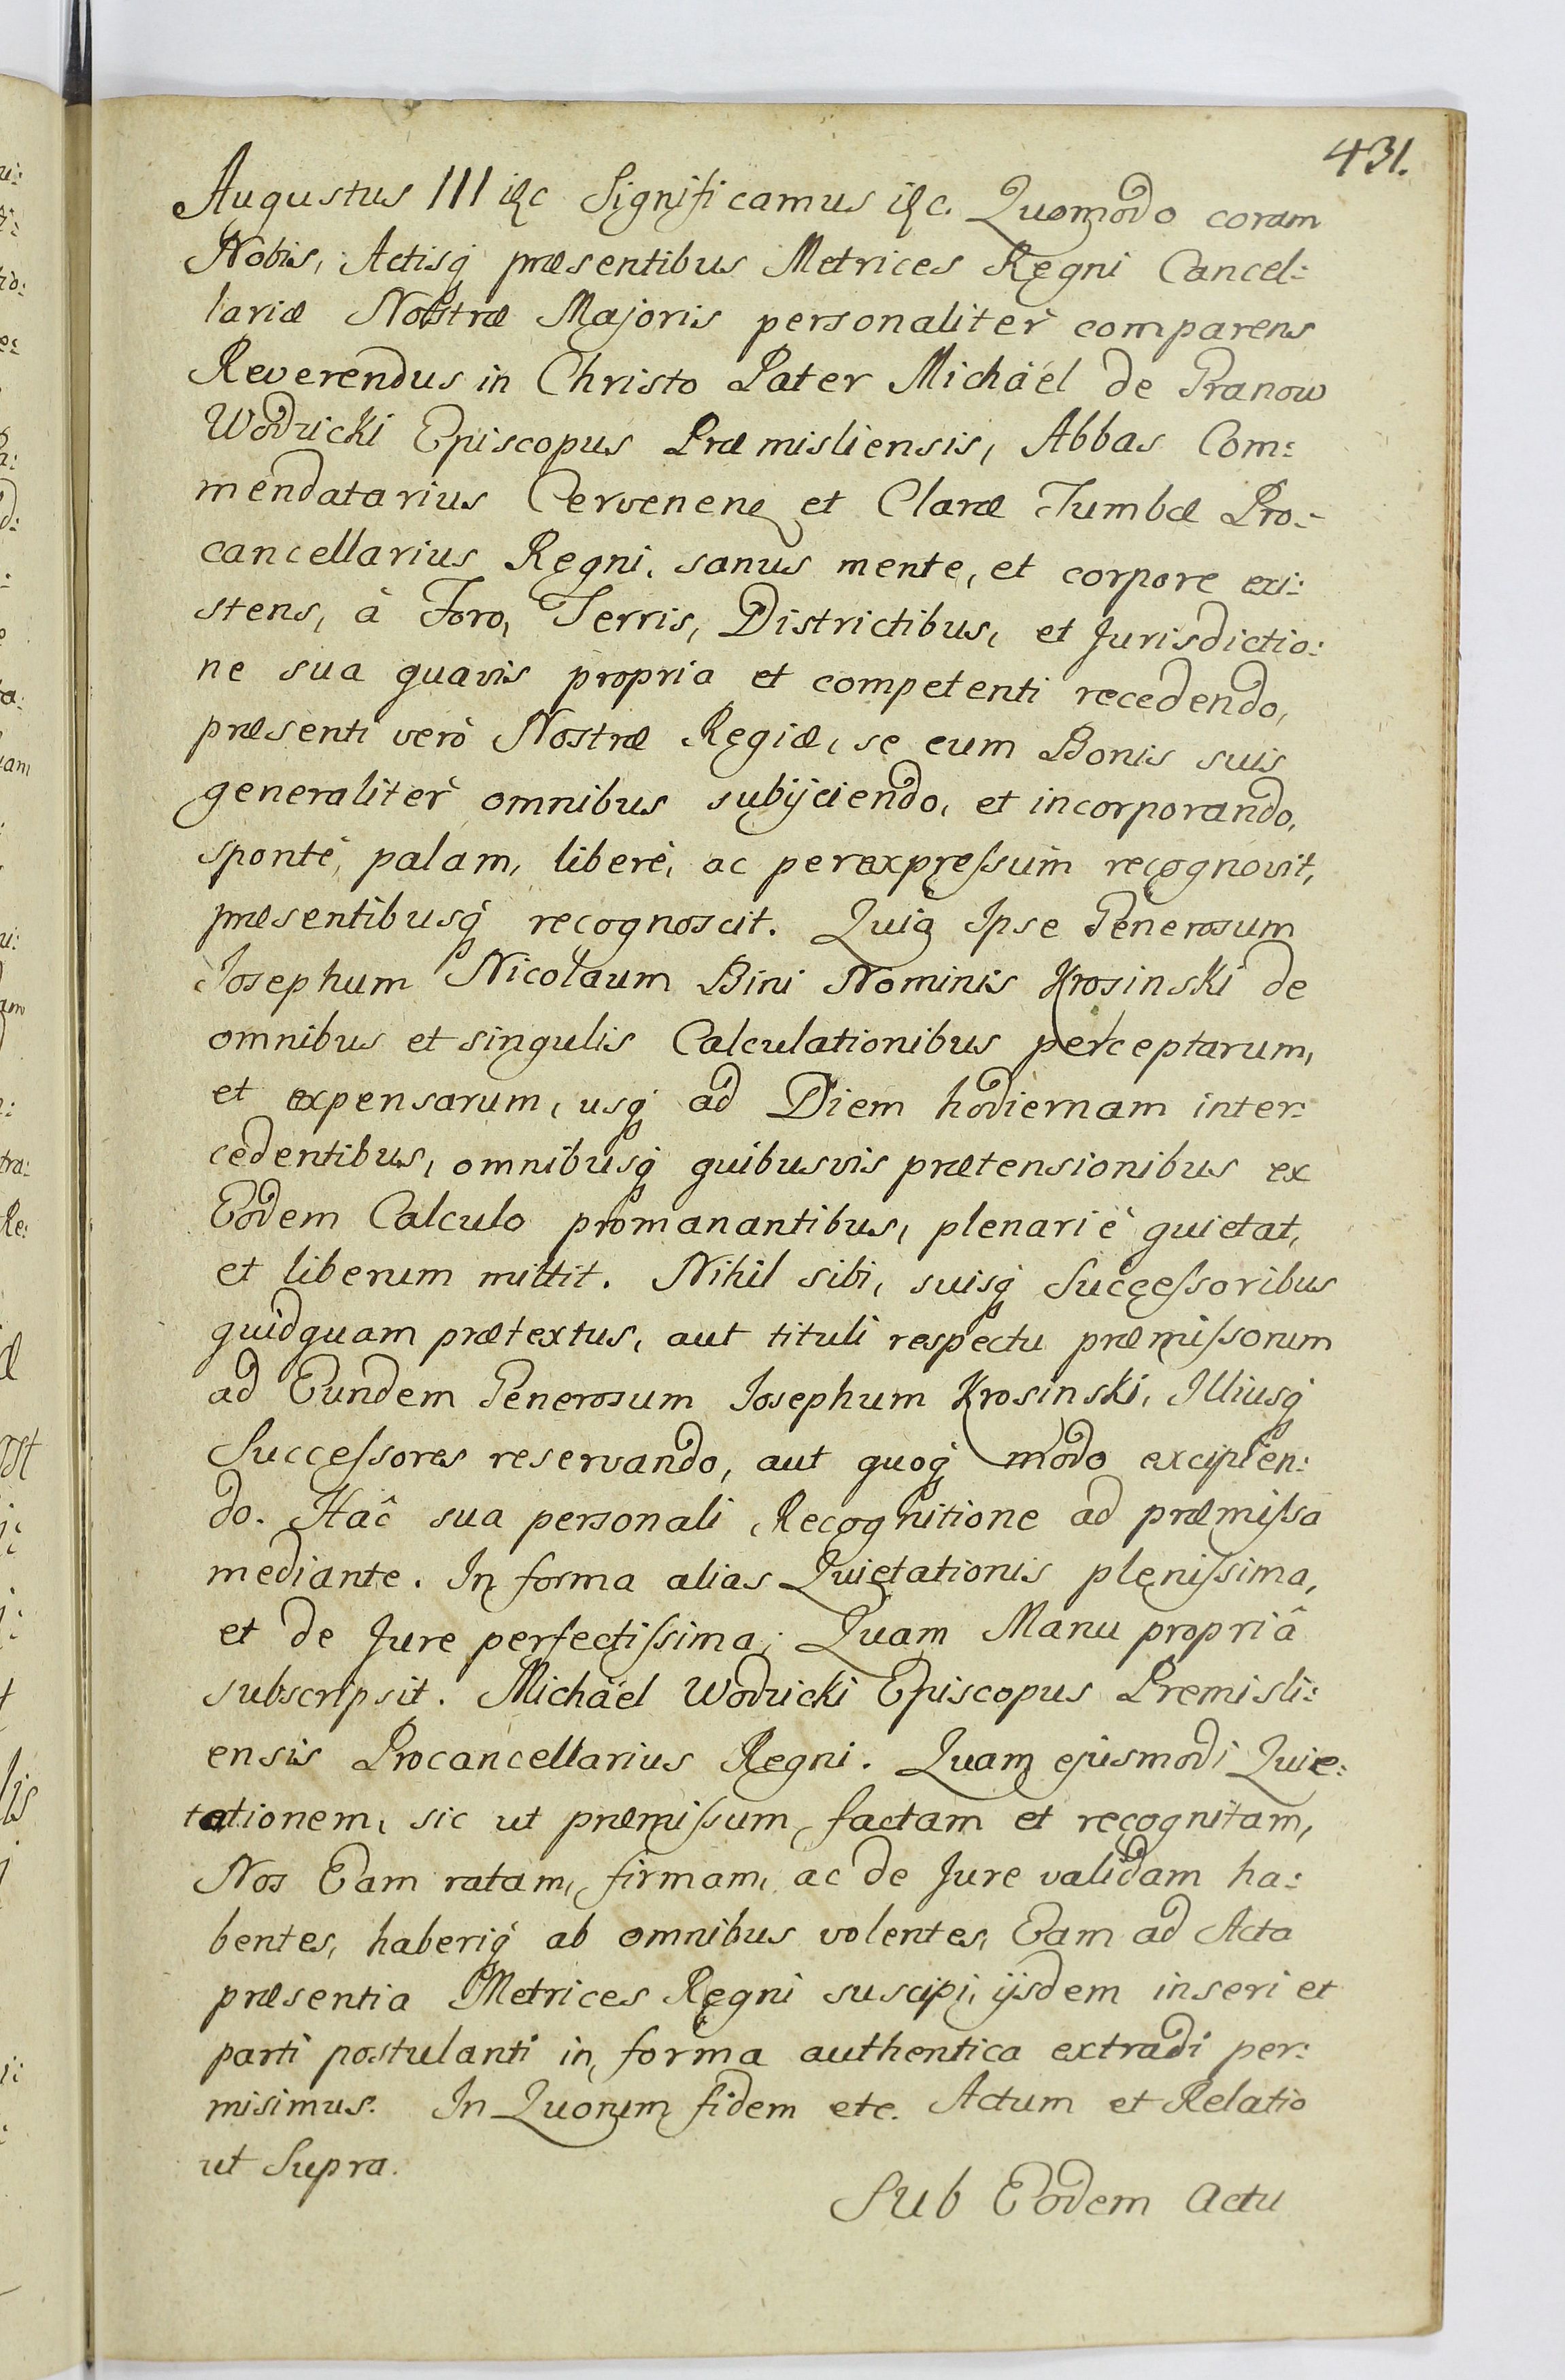 431.
Augustus III etc Significamus etc. Quomodo coram
Nobis, Actisq́ præsentibus Metrices Regni Cancel:
lariæ Nostræ Majoris personalitèr comparens
Reverendus in Christo Pater Michäel de Granow
Wodzicki Episcopus Præmisliensis, Abbas Com:
mendatarius Cervenen et Claræ Tumbæ Pro:
cancellarius Regni, sanus mente, et corpore exi:
stens, à Foro, Terris, Districtibus, et Jurisdictio:
ne sua quavis propria et competenti recedendo,
præsenti verò Nostræ Regiæ, se cum Bonis suis
generalitèr omnibus subijciendo, et incorporando,
spontè, palam, liberè, ac perexpreſsum recognovit,
præsentibusq́ recognoscit. Quia Ipse Generosum
Josephum Nicolaum Bini Nominis Krosinski de
omnibus et singulis Calculationibus perceptarum,
et expensarum, usq́ ad Diem hodiernam inter:
cedentibus, omnibusq́ quibusvis prætensionibus ex
Eodem Calculo promanantibus, plenariè quietat,
et liberum mittit. Nihil sibi, suisq́ Succeſsoribus
quidquam prætextus, aut tituli respectu præmiſsorum
ad Eundem Generosum Josephum Krosinski, Illiusq́
Succeſsores reservando, aut quoq́ modo excipien:
do. Hac̑ sua personali Recognitione ad præmiſsa
mediante. In forma alias Quietationis pleniſsima,
et de Jure perfectiſsima; Quam Manu propriâ
subscripsit. Michäel Wodzicki Episcopus Premisli:
ensis Procancellarius Regni. Quam ejusmodi Quie:
tationem, sic ut præmiſsum, factam et recognitam,
Nos Eam ratam, firmam, ac de Jure validam ha:
bentes, haberiq́ ab omnibus volentes, Eam ad Acta
præsentia Metrices Regni suscipi, ijsdem inseri et
parti postulanti in forma authentica extradi per:
misimus. In Quorum fidem etc. Actum et Relatio
ut Supra.
Sub Eodem Actu